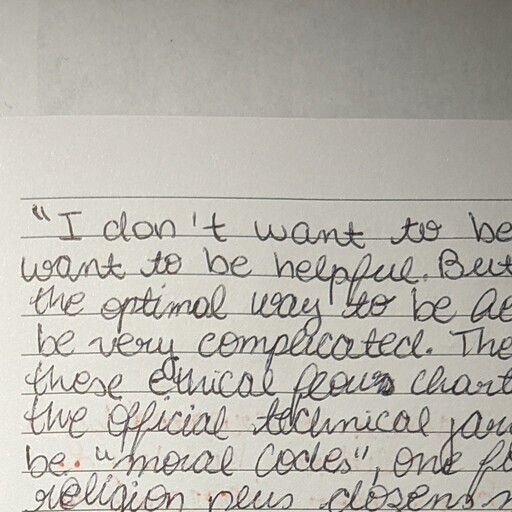 "I don't want to be
want to be helpful. But
the optimal way to be
be very complicated. The
these ethical flow chart
the official technical jar
be "moral codes", one fl
religion plus closen